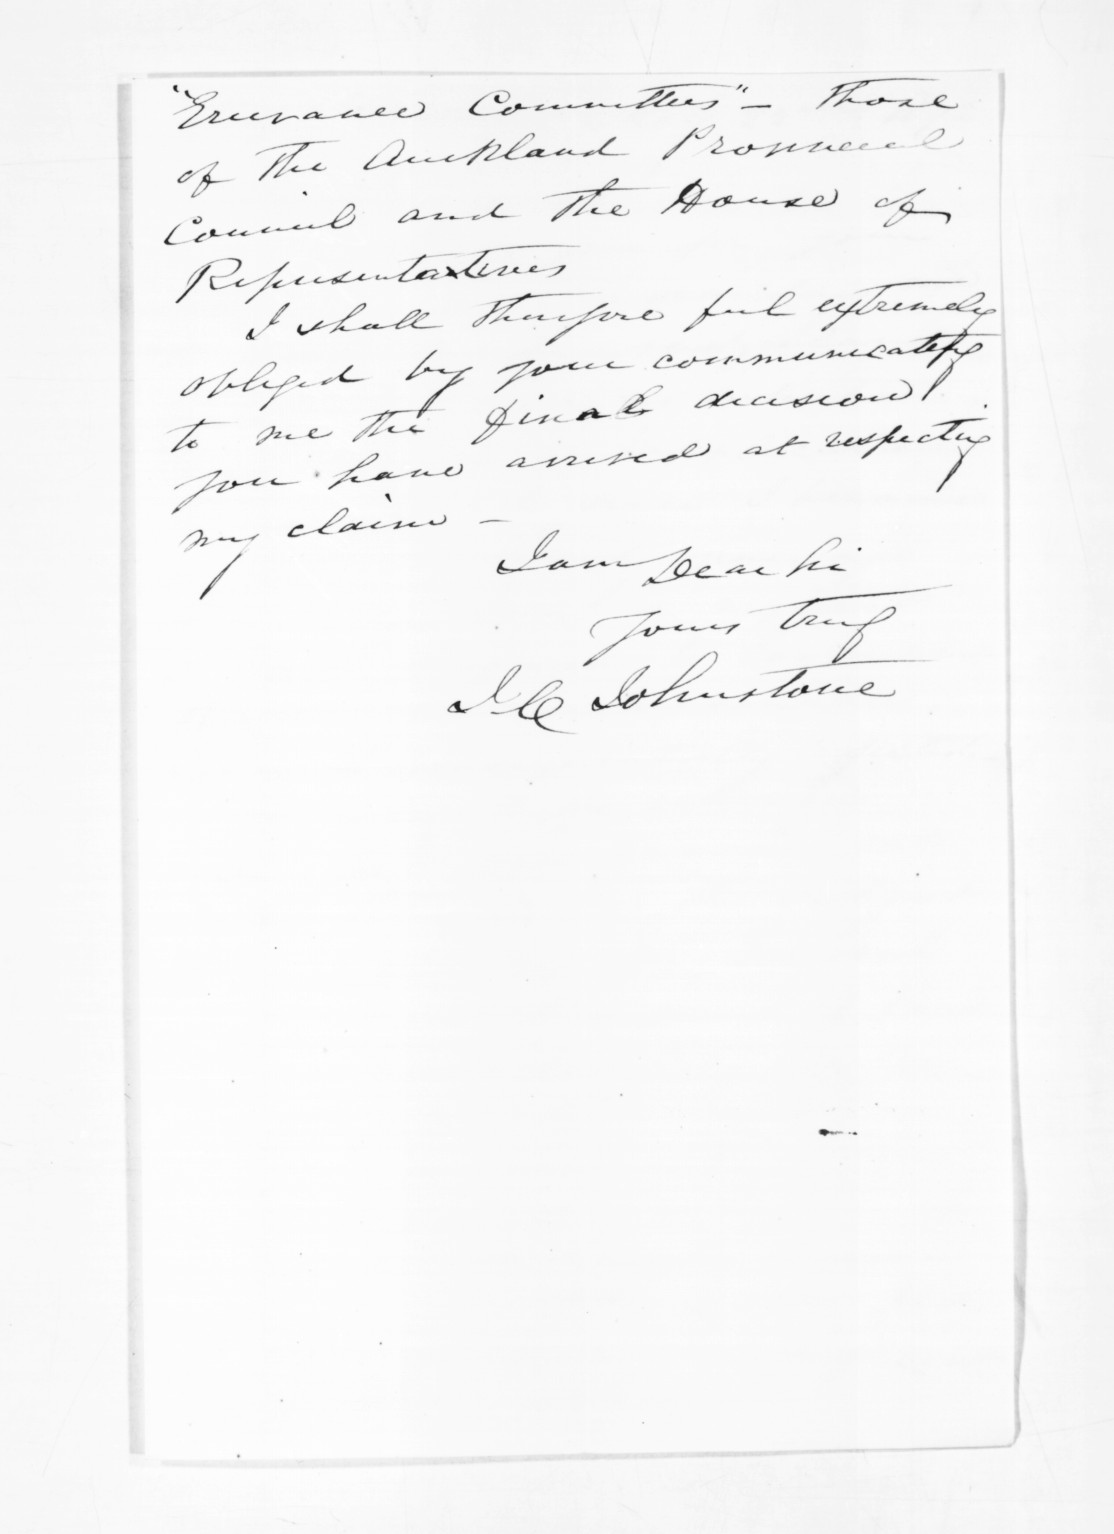 "Grievance Committees" - those
of the Auckland Provincial
Council and the House of
Representatives
I shall therefore feel extremely
obliged by your communicating
to me the final decision
you have arrived at respecting
my claim -
I am Dear Sir
yours truly
J C Johnstone